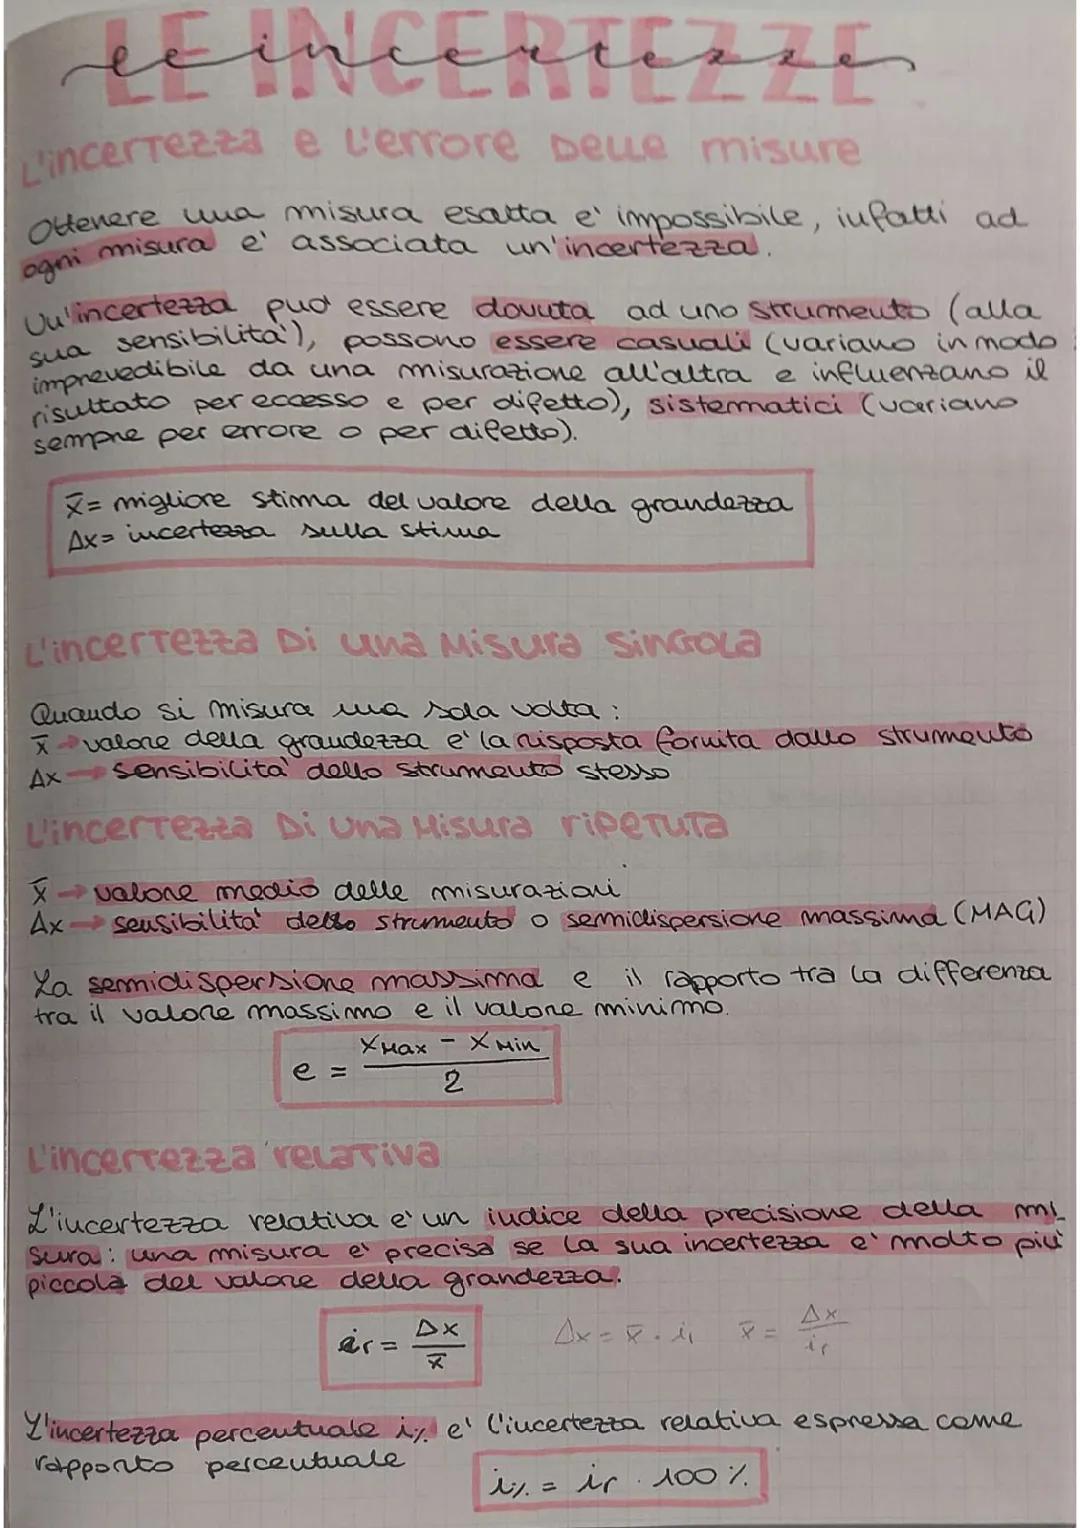 LE INCERTEZZE
le incertezze
L'incertezza e l'errore delle misure
Ottenere una misura esatta e' impossibile, infatti ad
ogni misura e' associata un'incertezza.
Un'incertezza può essere dovuta ad uno strumento (alla
sua sensibilita'), possono essere casuali (variano in modo
imprevedibile da una misurazione all'altra e influenzano il
risultato per eccesso e per difetto), sistematici (variano
sempre per errore o per difetto).
x̄ = migliore stima del valore della grandezza
Δx = incertezza sulla stima
L'incertezza di una misura singola
Quando si misura una sola volta:
x̄ → valore della grandezza e' la risposta fornita dallo strumento
Δx → sensibilita' dello strumento stesso
L'incertezza di una misura ripetuta
x̄ → valore medio delle misurazioni
Δx → sensibilita' dello strumento o semidispersione massima (MAG)
La semidispersione massima e il rapporto tra la differenza
tra il valore massimo e il valore minimo.
e = (xMax - xMin)/2
L'incertezza relativa
L'incertezza relativa e' un indice della precisione della mi_
sura: una misura e' precisa se la sua incertezza e' molto piu'
piccola del valore della grandezza.
ir = Δx/x̄ Δx = x̄ · ir x̄ = Δx/ir
L'incertezza percentuale i% e' l'incertezza relativa espressa come
rapporto percentuale
i% = ir · 100%